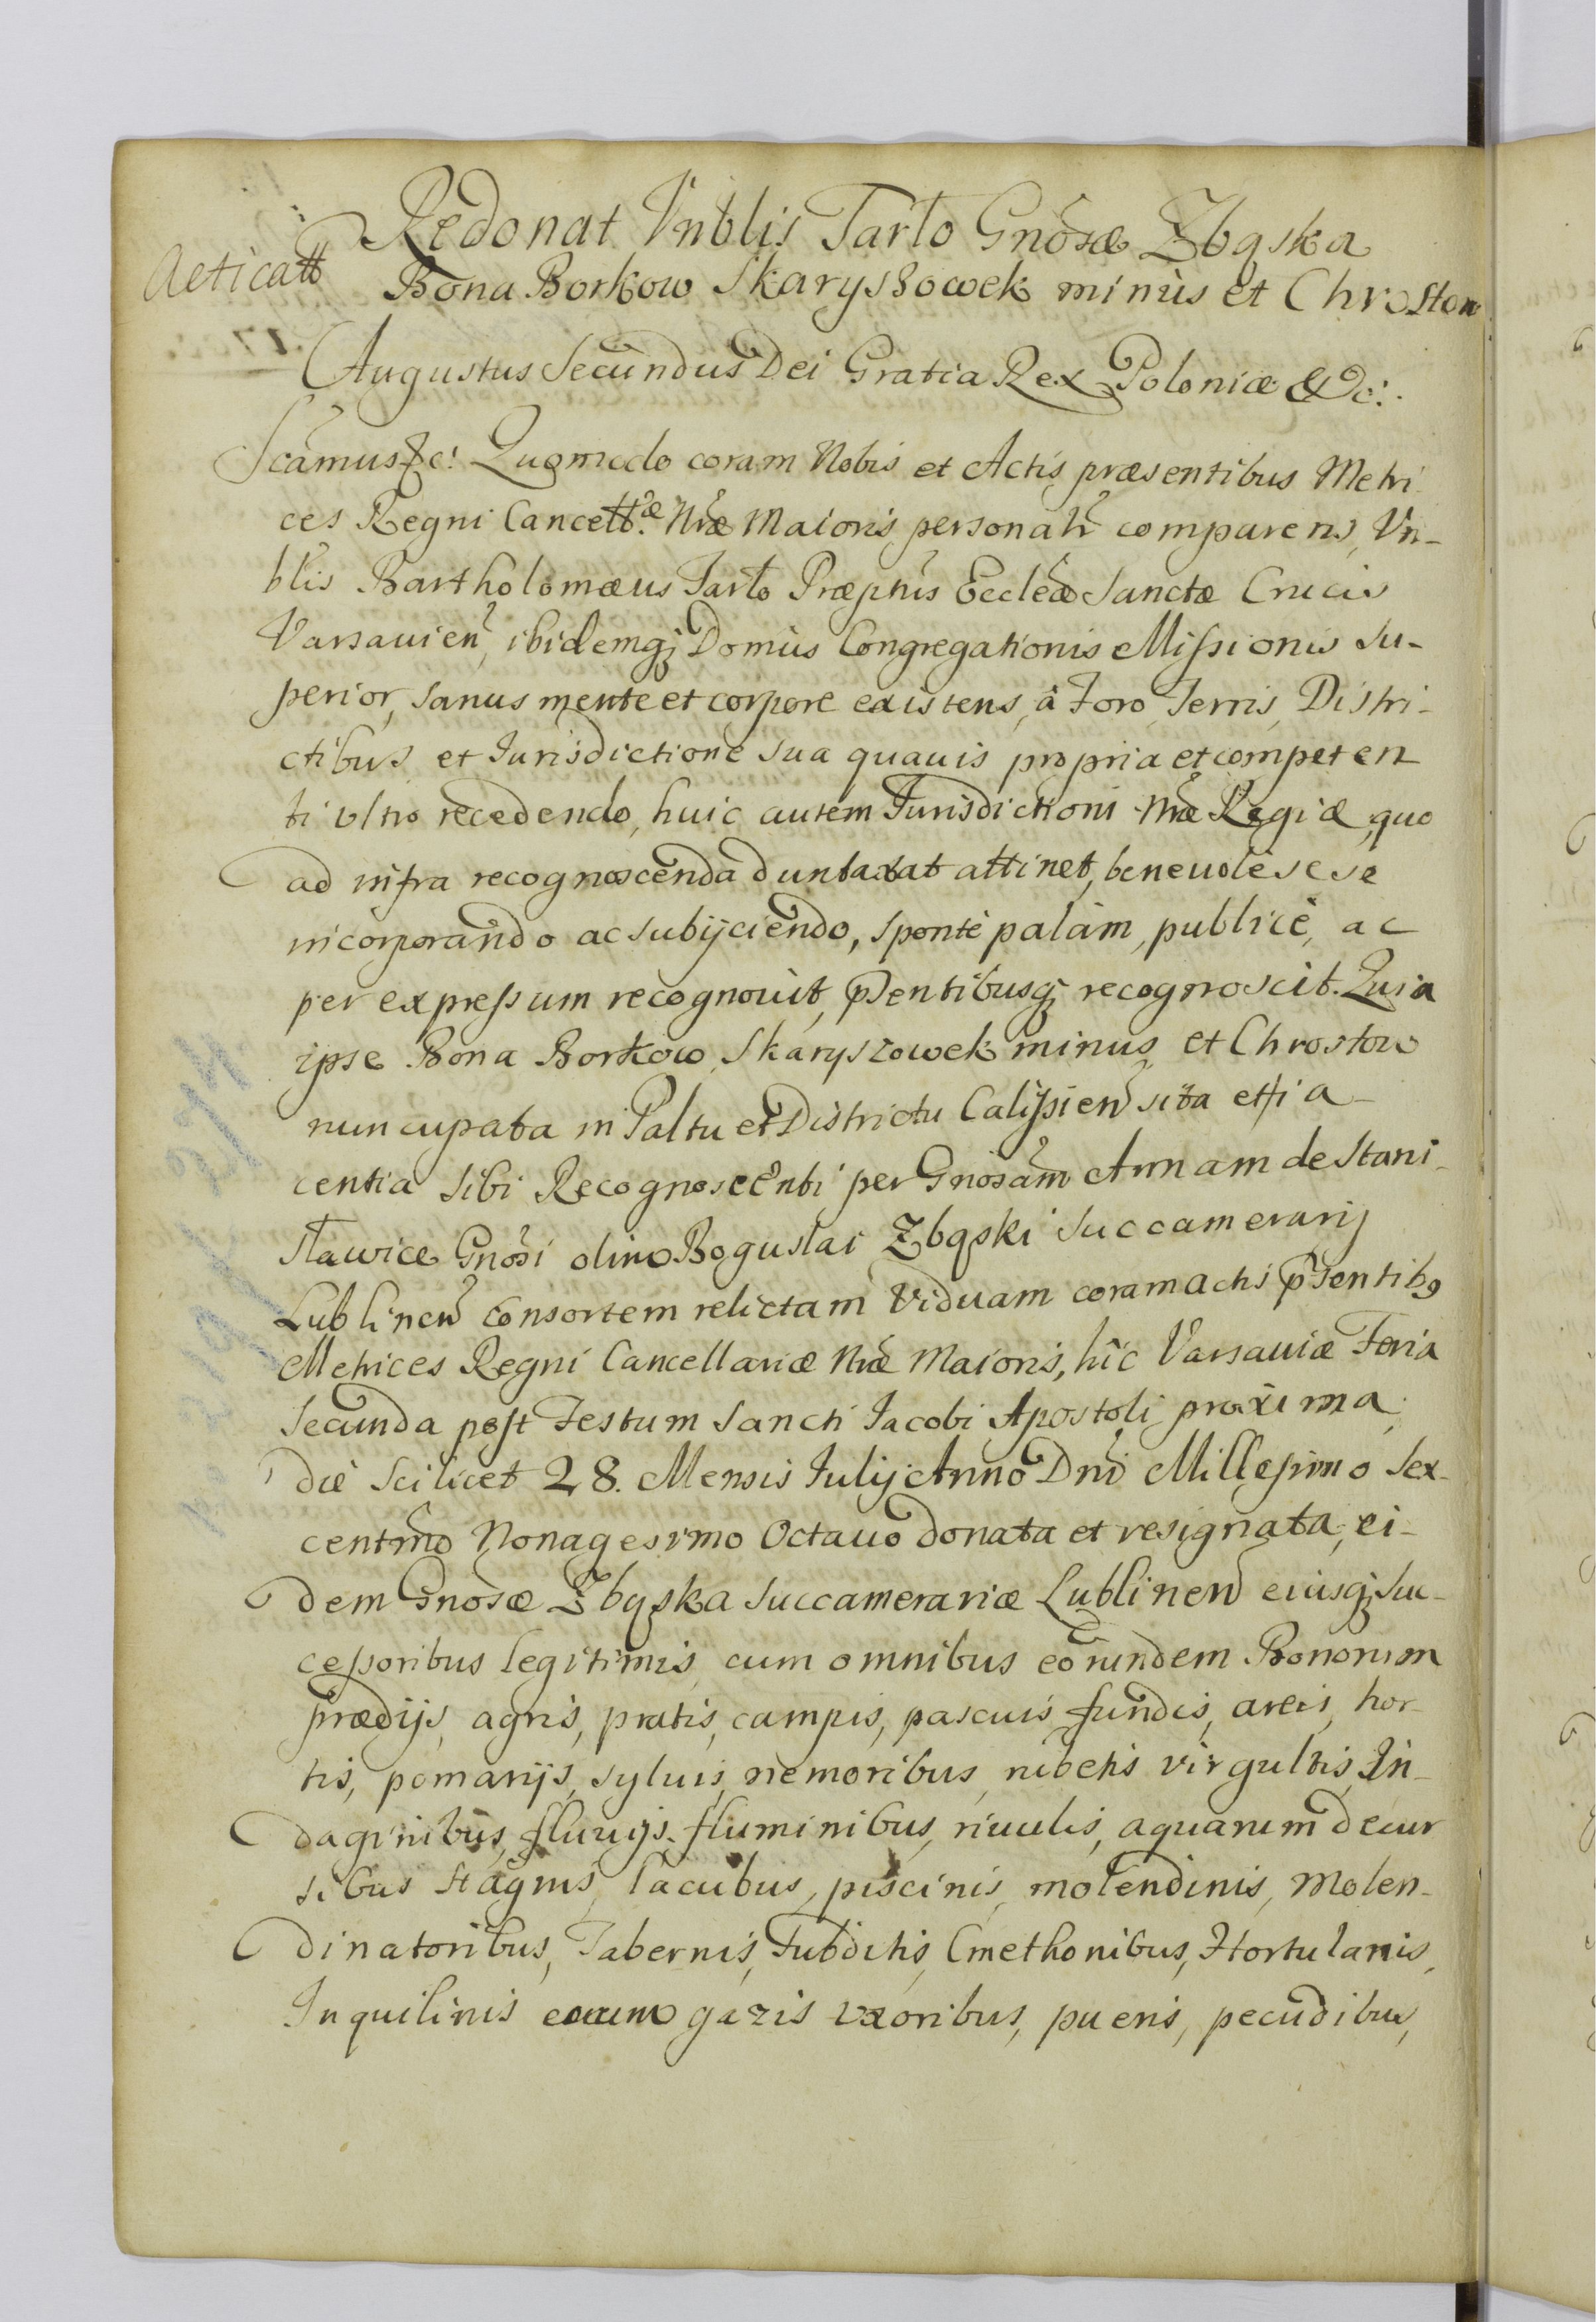 Redonat Vnblis Tarło Gnosæ Zbąska
Acticatt Bona Borkow Skaryszowek minùs et Chrostow
Augustus Secundus Dei Gratia Rex Poloniæ &c:
Scamus &c: Quomodo coram Nobis et Actis præsentibus Metri
ces Regni Cancell:æ Nræ Maioris personalr comparens, Vn-
blis Bartholomæus Tarło Præptus Eccleæ Sanctæ Crucis
Varsauien, ibidemq; Domùs Congregationis Missionis Su-
perior, sanus mente et corpore existens, à Foro Terris, Distri-
ctibus et Iurisdictione sua quauis propria et competen
ti vltro recedendo, huic autem Iurisdictioni Nræ Regiæ, quo
ad infra recognoscenda duntaxat attinet, beneuolè sese
incorporando ac subijciendo, spontè palàm, publicè, ac
per expressum recognouit, pñsentibusq; recognoscit. Quia
ipse Bona Borkow, Skaryszowek minus, et Chrostow
nuncupata in Paltu et Districtu Calissien sita effica-
centia sibi Recognoscenti per Gnosam Annam de Stani-
sławice Gnosi olim Bogusłai Zbąski Succamerarij
Lublinen consortem relictam Viduam coram actis pñsentibg
Metrices Regni Cancellariæ Nræ Maioris, hìc Varsauiæ Feria
Secunda post Festum Sancti Iacobi Apostoli proxima
die scilicet 28. Mensis Iulij Anno Dni Millesimo Sex-
centmo Nonagesimo Octauo donata et resignata, ei-
dem Gnosæ Zbąska Succamerariæ Lublinen eiusq; Suc-
cessoribus legitimis, cum omnibus eorundem Bonorum
prædijs, agris, pratis, campis, pascuis, fundis, areis, hor-
tis, pomarijs, syluis, nemoribus, rubetis virgultis, In-
daginibus, fluuijs, fluminibus, riuulis, aquarum decur
sibus stagnis, lacubus, piscinis, molendinis, Molen-
dinatoribus, Tabernis, Subditis, Cmethonibus, Hortulanis,
Inquilinis eorum gazis vxoribus, pueris, pecudibus,